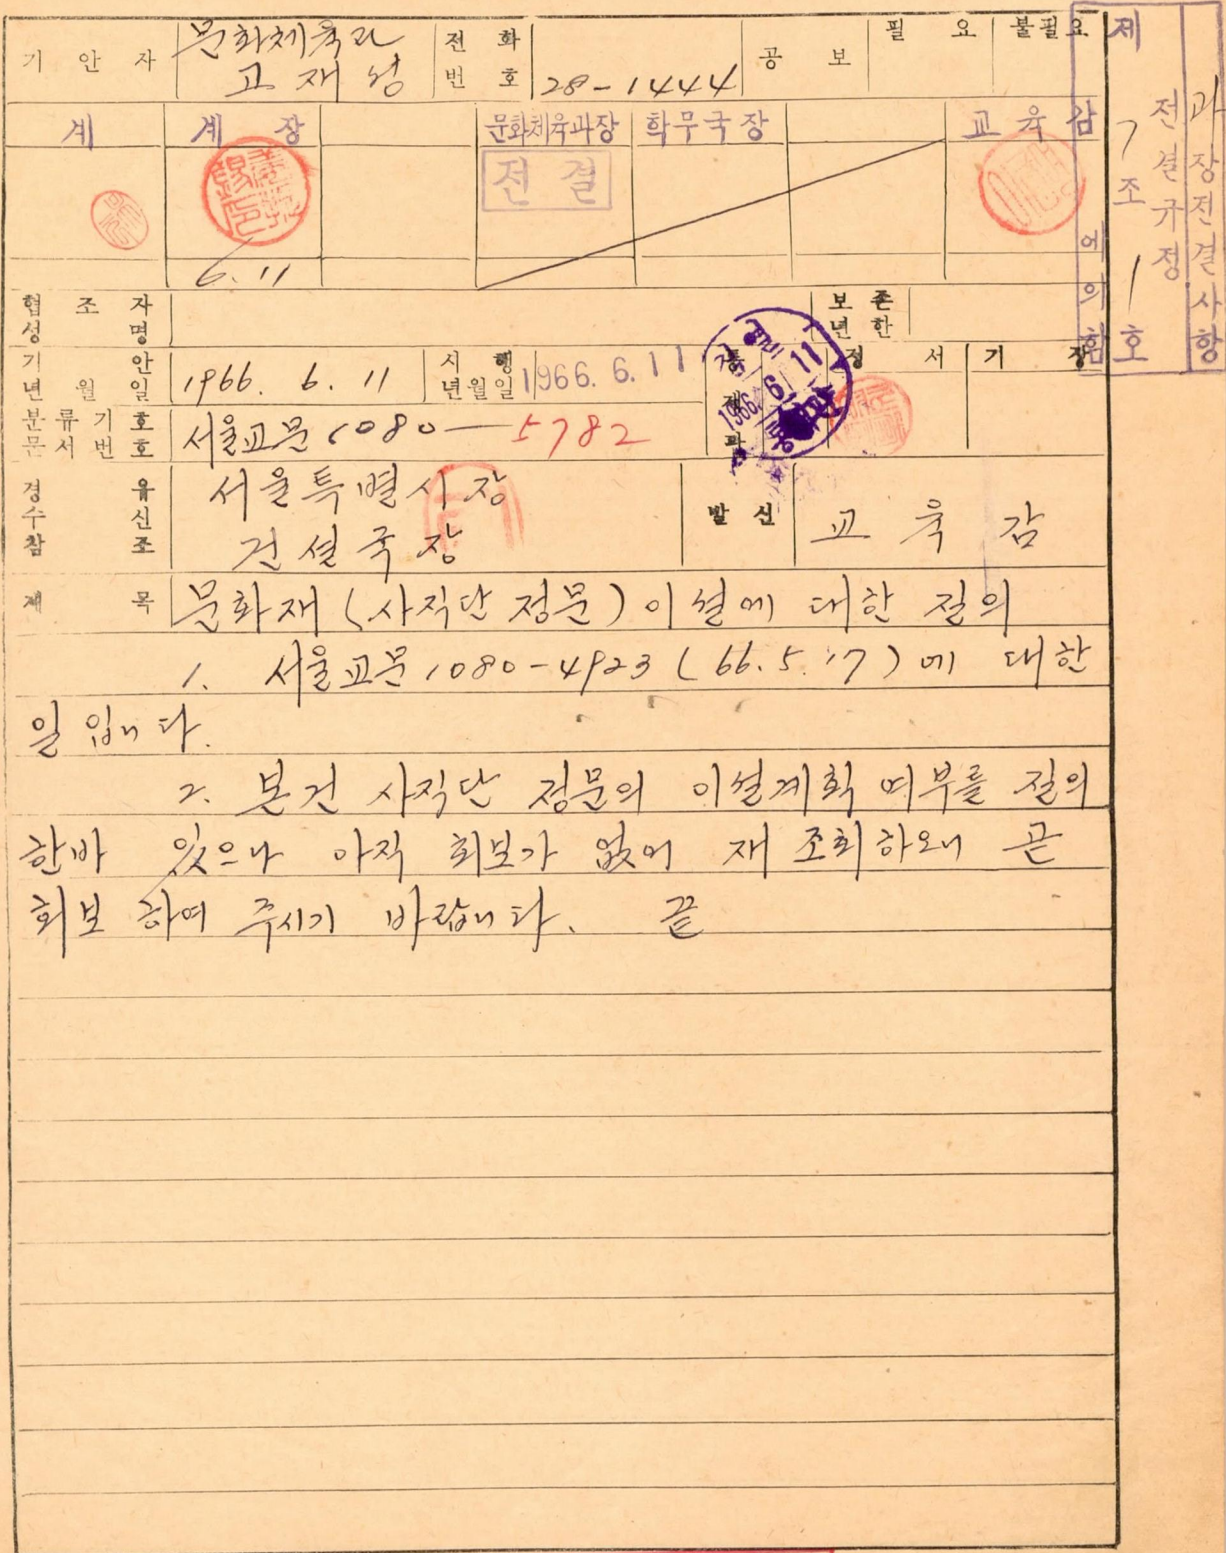 기 안 자 문화체육과 고재성 전화번호 28-1444 공 보 필 요 불필요
계 계 장 문화체육과장 학무국장 교육감
전결
6.11
과장전결사항
전결규정
제 7조 1호
에 의함
협조자성명 보존년한
기안년월일 1966. 6. 11 시행년월일 1966. 6. 11 통제과 정 서 기 장
1966. 6. 11
분류기호문서번호 서울교문 1080-5782
경유수신참조 서울특별시장 발 신 교 육 감
건설국장
제 목 문화재 (사직단 정문) 이설에 대한 질의
1. 서울교문 1080-4923 (66.5.17)에 대한
일입니다.
2. 본건 사직단 정문의 이설계획 여부를 질의
한바 있으나 아직 회보가 없어 재 조회하오니 곧
회보 하여 주시기 바랍니다. 끝